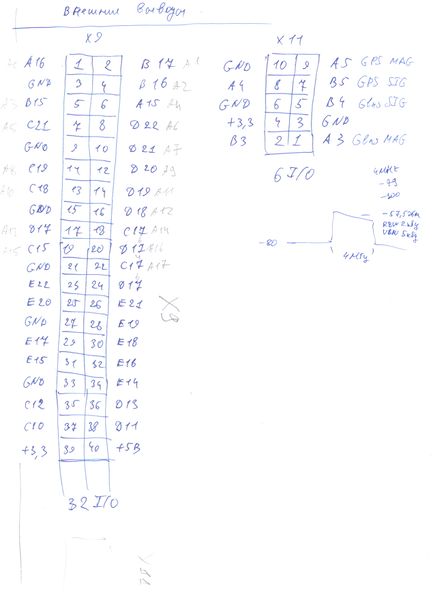 Внешние выводы
X9
A16 1 2 B17 A1
GND 3 4 B16 A2
B15 5 6 A15 A4
C21 7 8 D22 A6
GND 9 10 D21 A7
C19 11 12 D20 A9
C18 13 14 D19 A11
GND 15 16 D18 A12
D17 17 18 C17 A14
C15 19 20
GND 21 22 C17 A17
E22 23 24 D17
E20 25 26 E21
GND 27 28 E19
E17 29 30 E18
E15 31 32 E16
GND 33 34 E14
C12 35 36 D13
C10 37 38 D11
+3,3 39 40 +5В
32 I/O
X9
X11
GND 10 9 A5 GPS MAG
A4 8 7 B5 GPS SIG
GND 6 5 B4 Glns SIG
+3,3 4 3 GND
B3 2 1 A3 Glns MAG
6 I/O
-80
4МГц